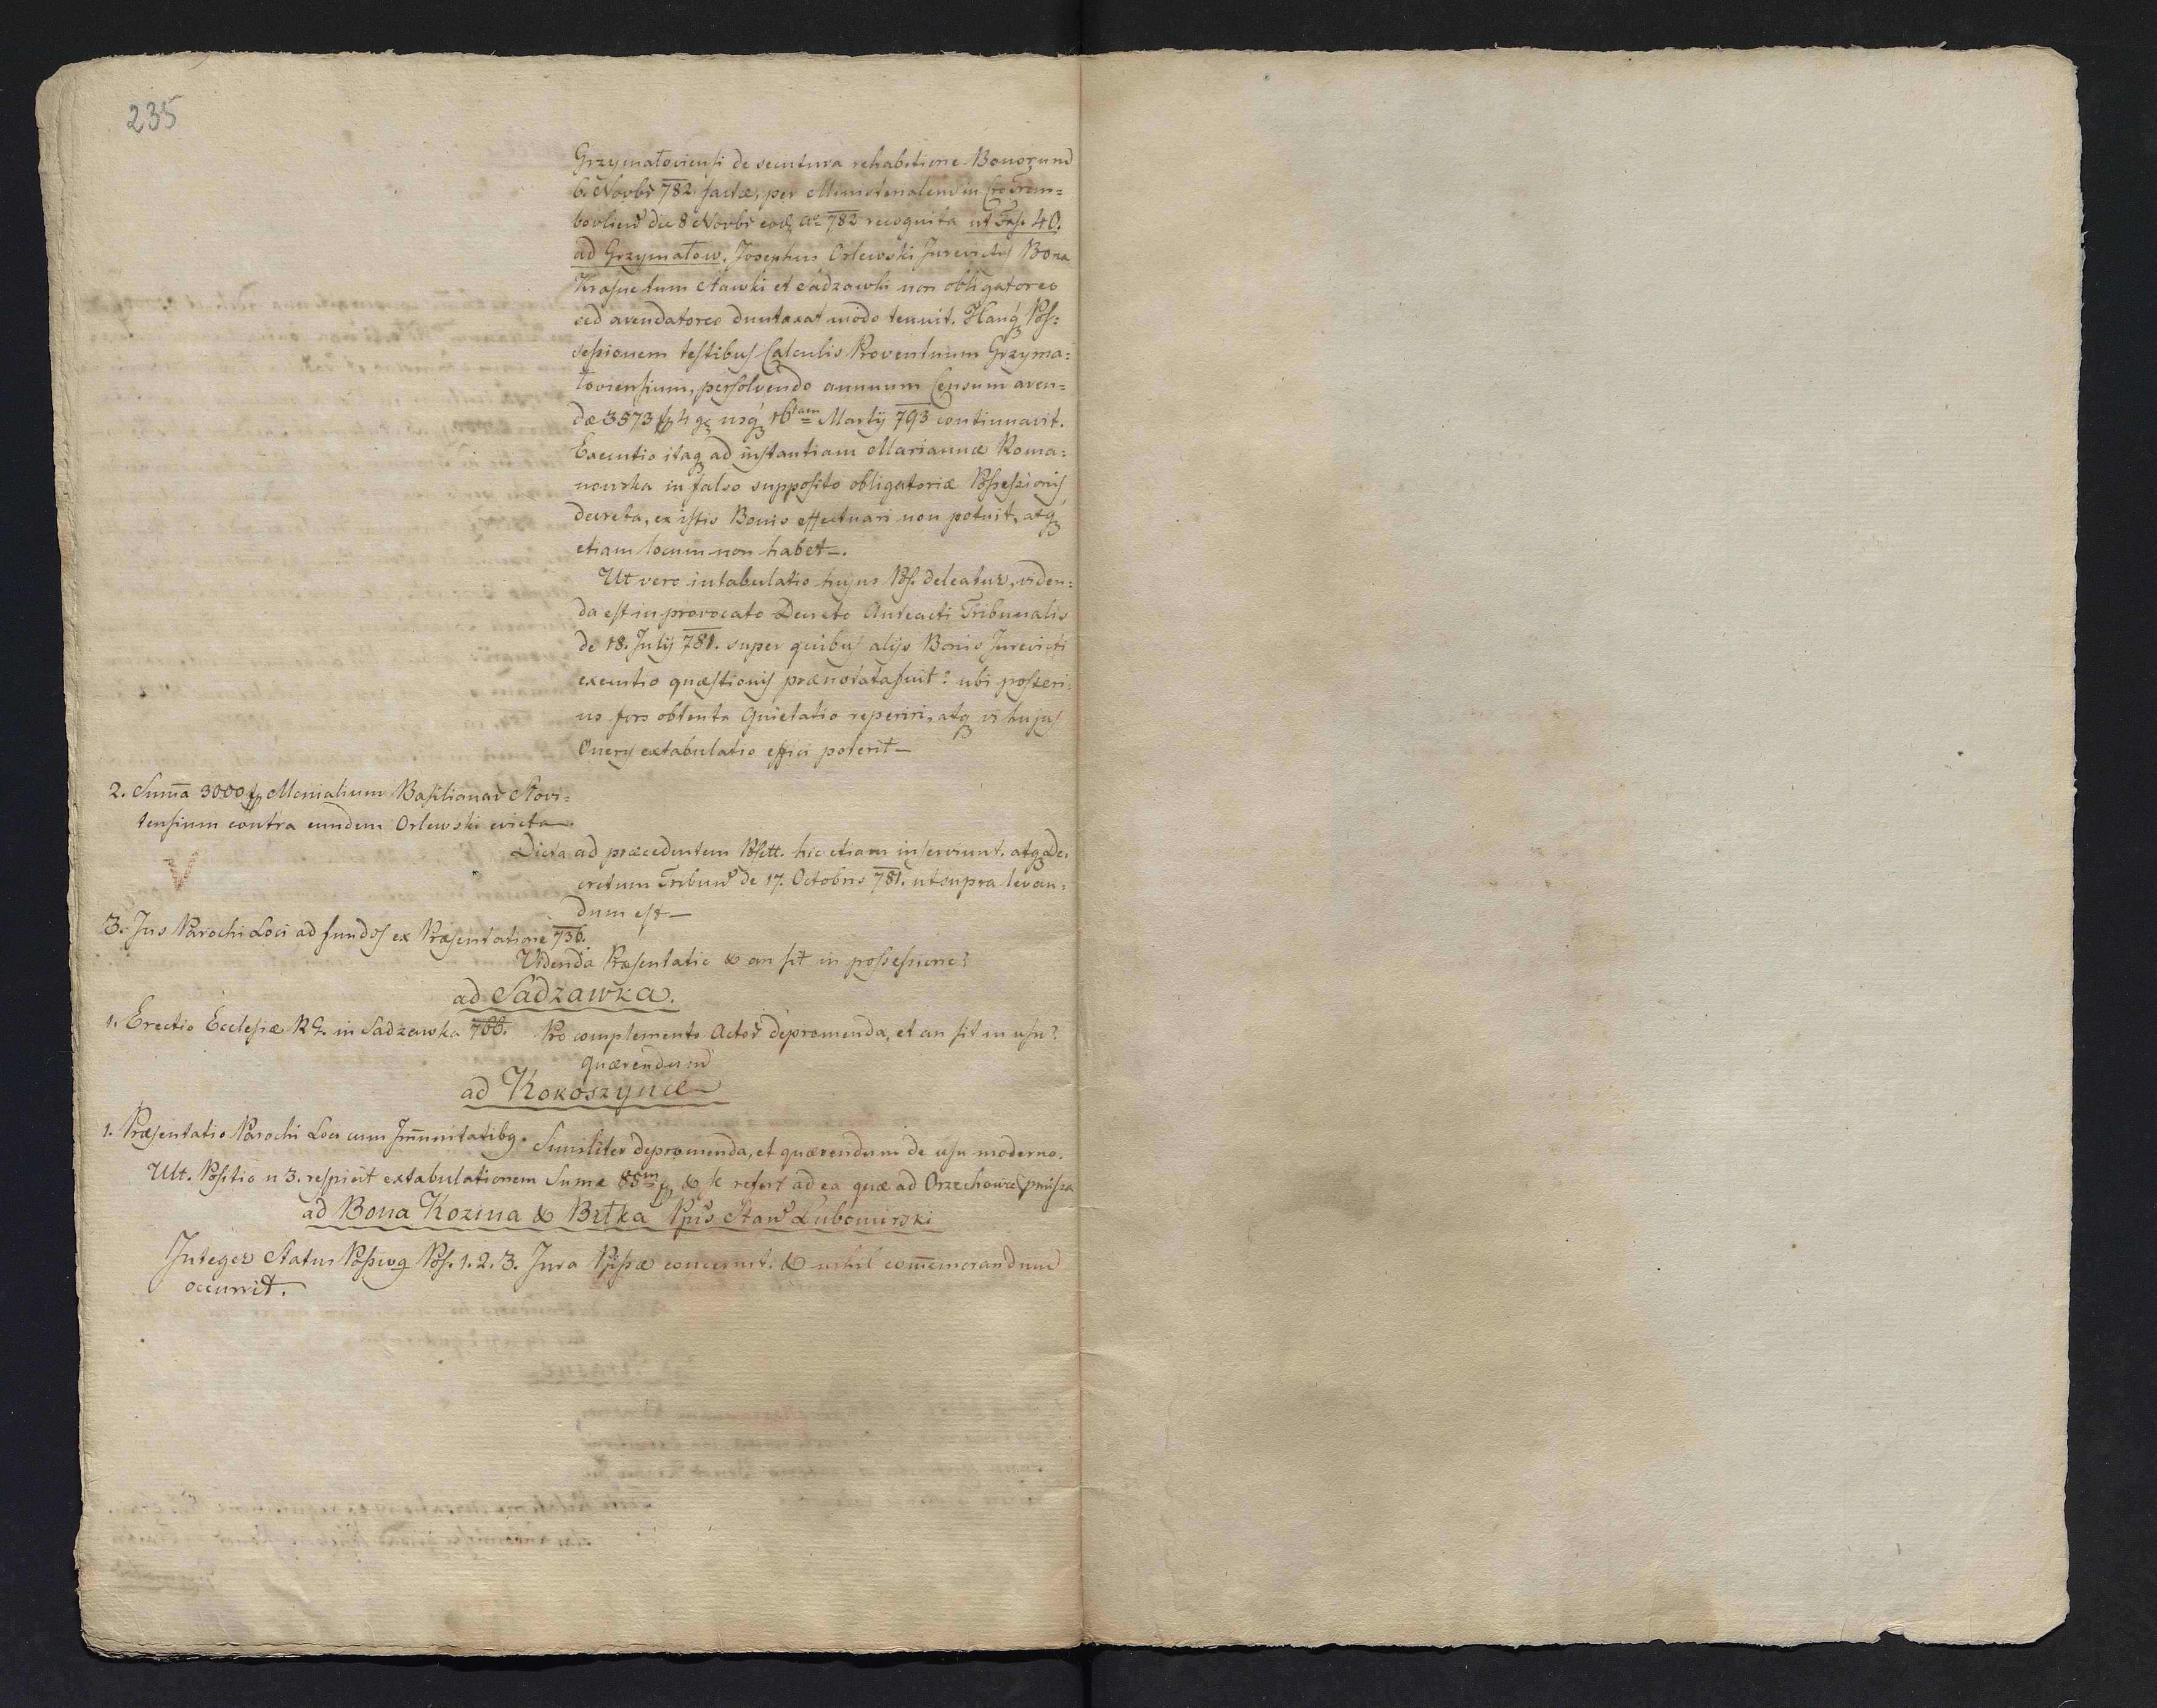 235
Grzymałoviensi de secutura rehabitione Bonorum
6. Novbr 782. factæ, per Ministerialem in Cro Trem=
bovlien die 8 Novbr eodq ao 782 recognita ut Fasc. 40.
ad Grzymałow. Josephus Orlewski Jurevictus Bona
Krasne tum Stawki et Sadzawki non obligatoreo
sed arendatoreo duntaxat modo tenuit. Hanq Pos=
sessionem testibus Calculis Proventuum Grzyma=
loviensium, persolvendo annuum Censum aren=
dæ 3573 fp 4 gq usq 16tam Martÿ 793 continuavit.
Executio itaq ad instantiam Mariannæ Roma=
nowska in falso supposito obligatoriæ Possessionis
decreta, ex istis Bonis effectuari non potuit, atq
etiam locum non habet.
Ut vero intabulatio hujus Pos. deleatur, viden=
da est in provocato Decreto Anteacti Tribunalis
de 18. Julÿ 781. super quibus alÿs Bonis Jurevicti
executio quæstionis prænotata fuit? ubi posteri=
us fors obtenta Quietatio reperiri, atq vi hujus
Oneris extabulatio effici poterit
2. Summa 3000 fp Monialium Basilianar Slovi=
tensium contra eundem Orlewski evicta
Dicta ad præcedentem Positt. hic etiam inserviunt. atq de=
cretum Tribun de 17. Octobris 781. ut supra levan=
dum est
V
3. Jus Parochi Loci ad fundos ex Præsentatione 736.
Videnda Præsentatio & an sit in possessione?
ad Sadzawka.
1. Erectio Ecclesiæ RG. in Sadzawka 766. Pro complemento Actor depromenda, et an sit in usu?
quærendum
ad Kokoszynce
1. Præsentatio Parochi Loci cum Immunitatibq. Similiter depromenda, et quærendum de usu moderno.
Ult. Positio n 3. respicit extabulationem Sumæ 85m fp & se refert ad ea quæ ad Orzechowce pmissa
ad Bona Kozina & Bitka Ppis Staw Lubomirski
Integer Status Possivq Pos. 1. 2. 3. Jura Ppissæ concernit. & nihil commemorandum
occurrit.